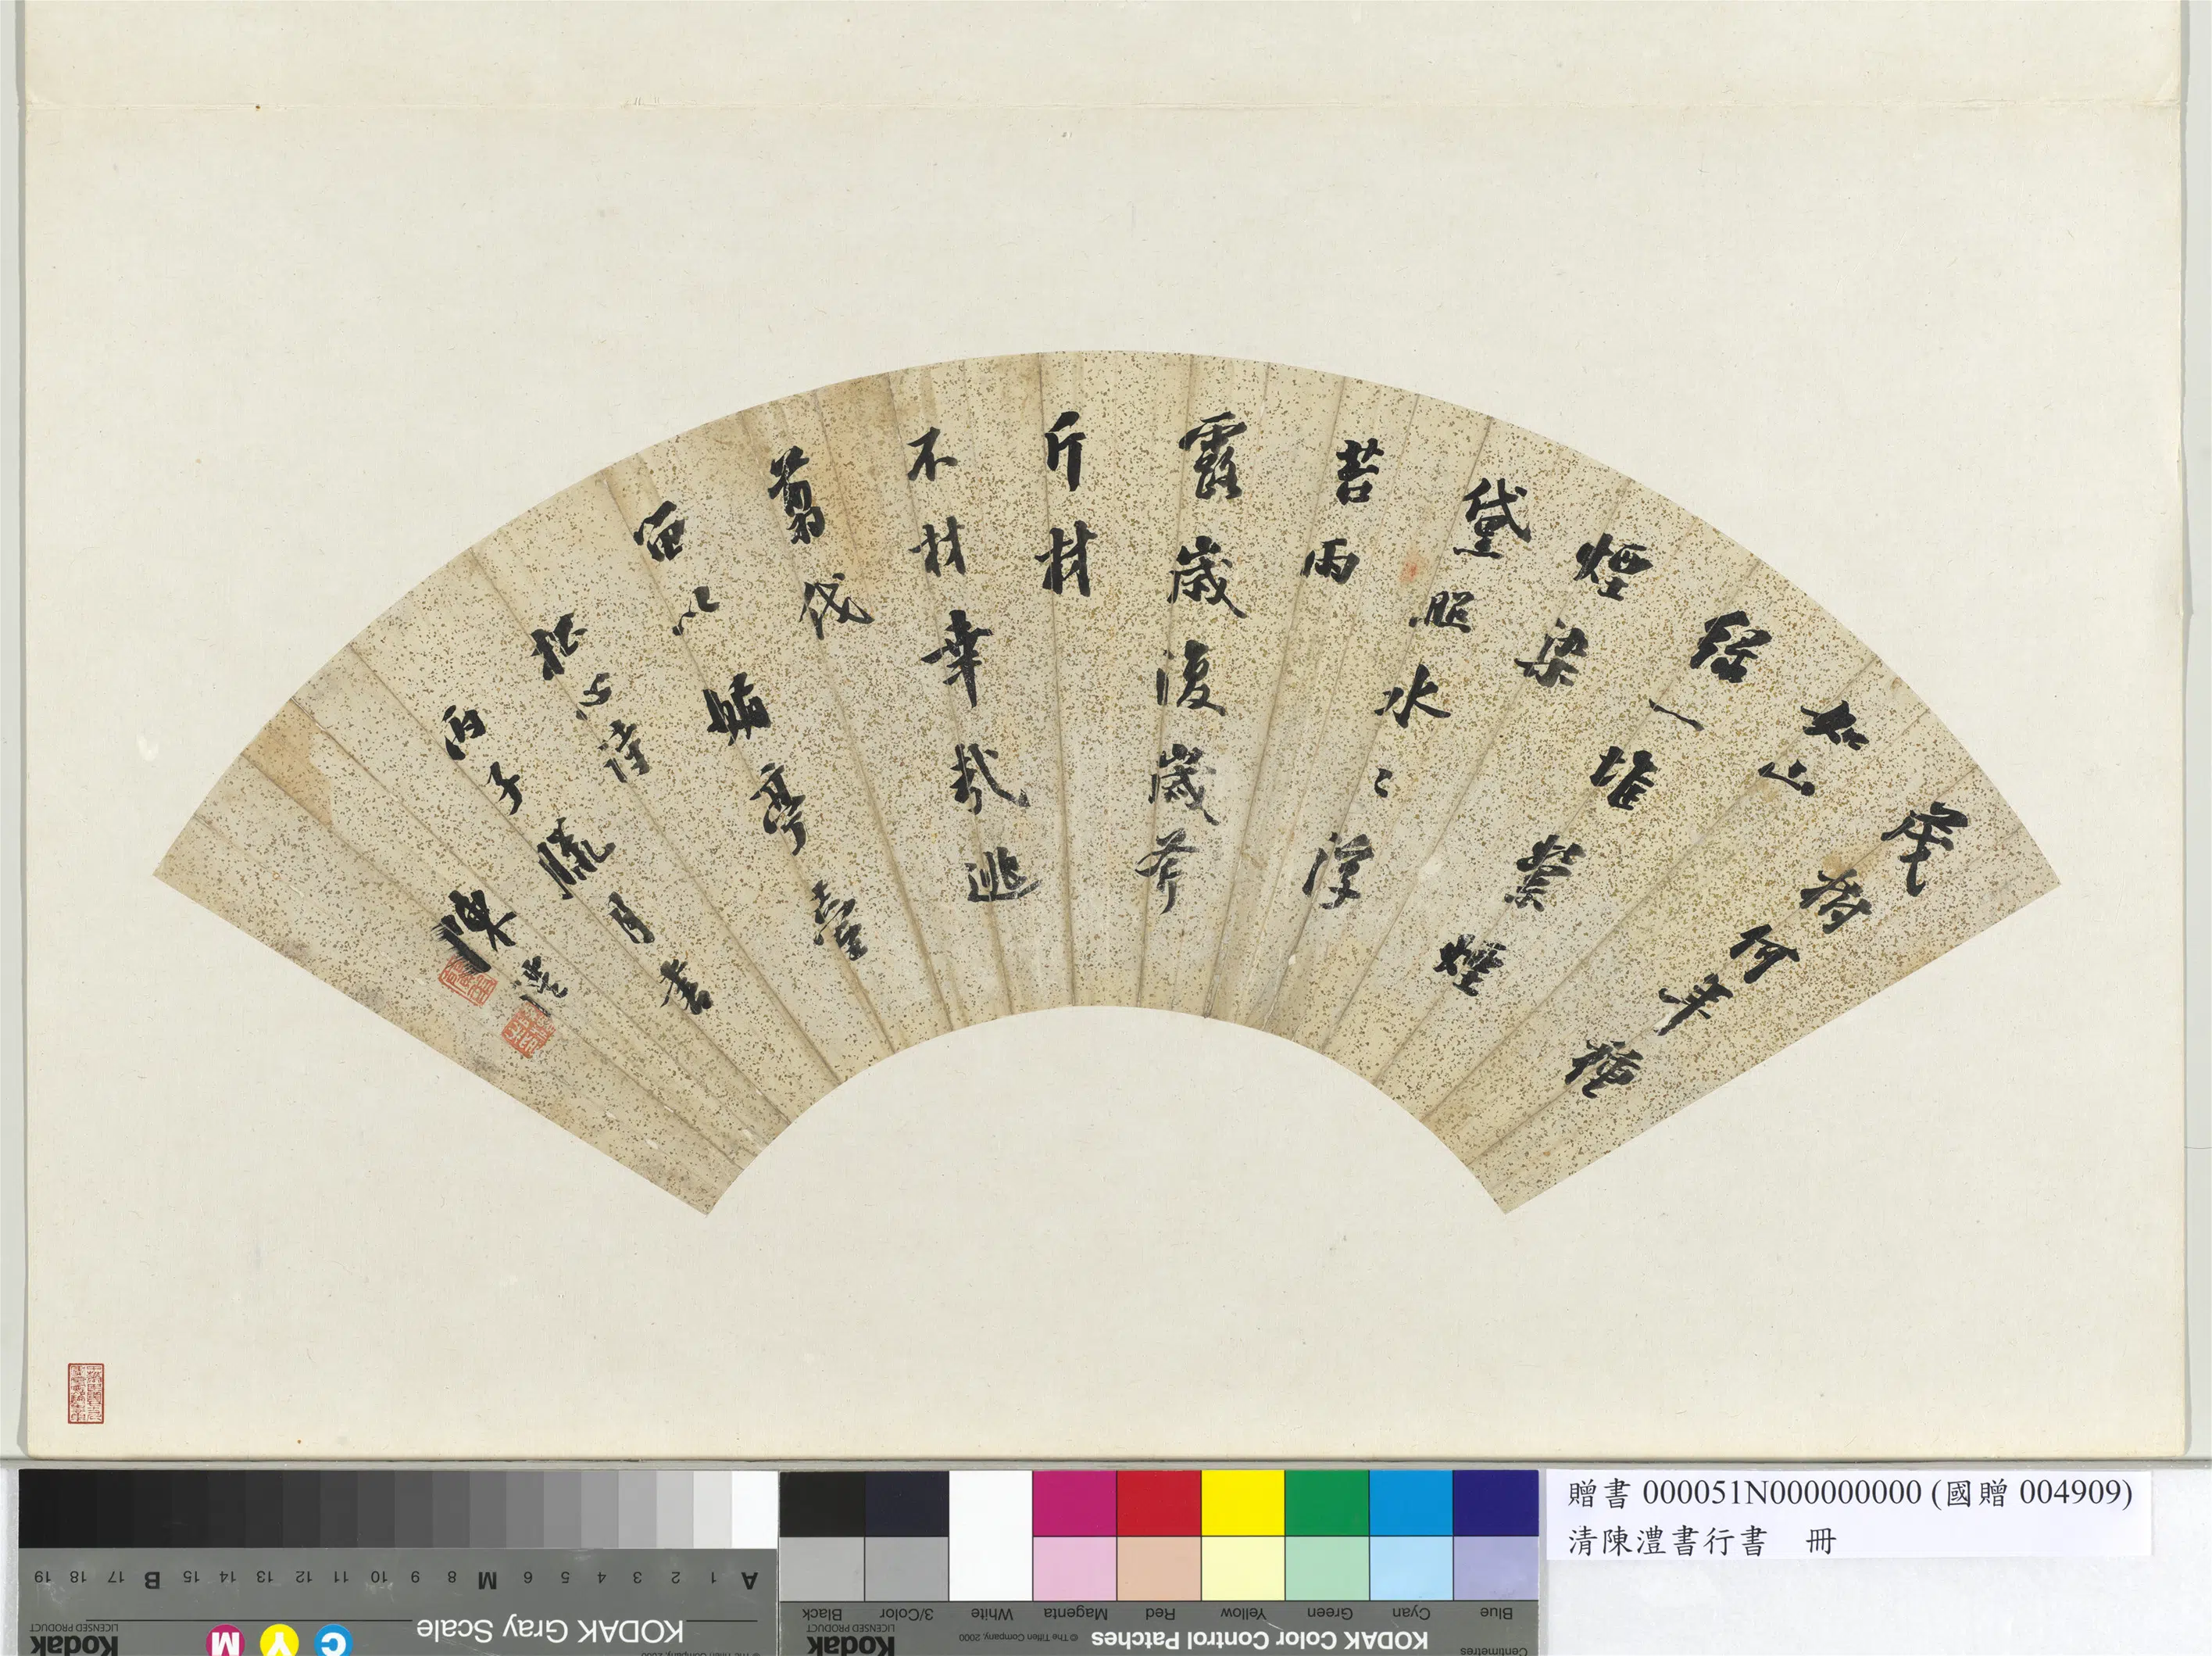 樹何年種
如山
綠一堆叢煙
煙染
黛照水〻浮
苔雨
露歲復歲斧
斤材
不材幸哉逃
翦伐
以亭臺
松心詩
丙子臘月書
陳澧
贈書 000051N000000000 (國贈 004909)
清陳澧書行書 冊
KODAK Gray Scale
A 1 2 3 4 5 6 M 8 9 10 11 12 13 14 15 B 17 18 19
C Y M
Kodak
LICENSED PRODUCT
KODAK Color Control Patches
© The Tiffen Company, 2000
Blue Cyan Green Yellow Red Magenta White 3/Color Black
Kodak
LICENSED PRODUCT
Centimetres